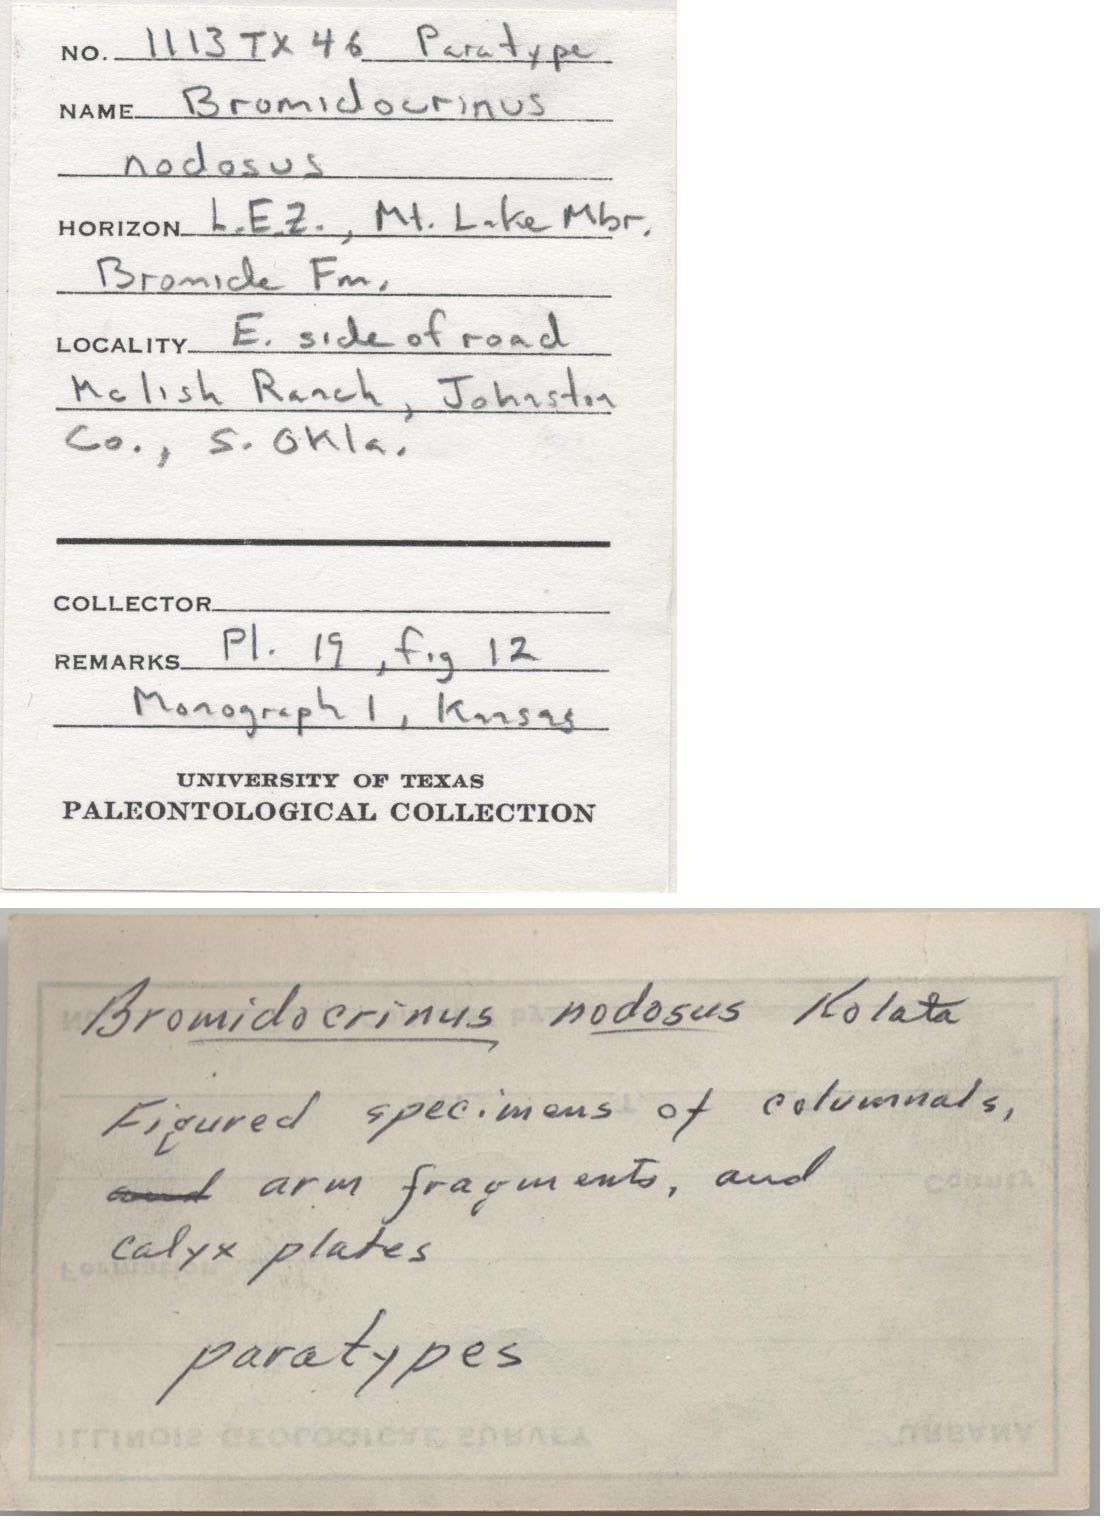 NO. 1113TX46 Paratype
NAME Bromidocrinus
nodosus
HORIZON L.E.Z., Mt. Lake Mbr.
Bromide Fm.
LOCALITY E. side of road
Mclish Ranch, Johnston
Co., S. Okla.
COLLECTOR
REMARKS Pl. 19, fig 12
Monograph 1, Kansas
UNIVERSITY OF TEXAS
PALEONTOLOGICAL COLLECTION
Bromidocrinus nodosus Kolata
Figured specimens of columnals,
and arm fragments, and
calyx plates
paratypes
County
Formation
ILLINOIS GEOLOGICAL SURVEY URBANA